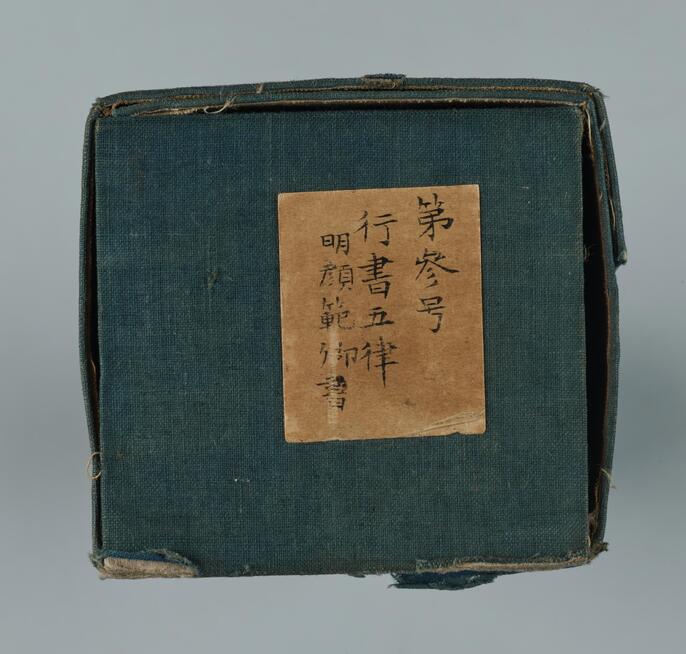 第参号
行書五律
明顔範御書